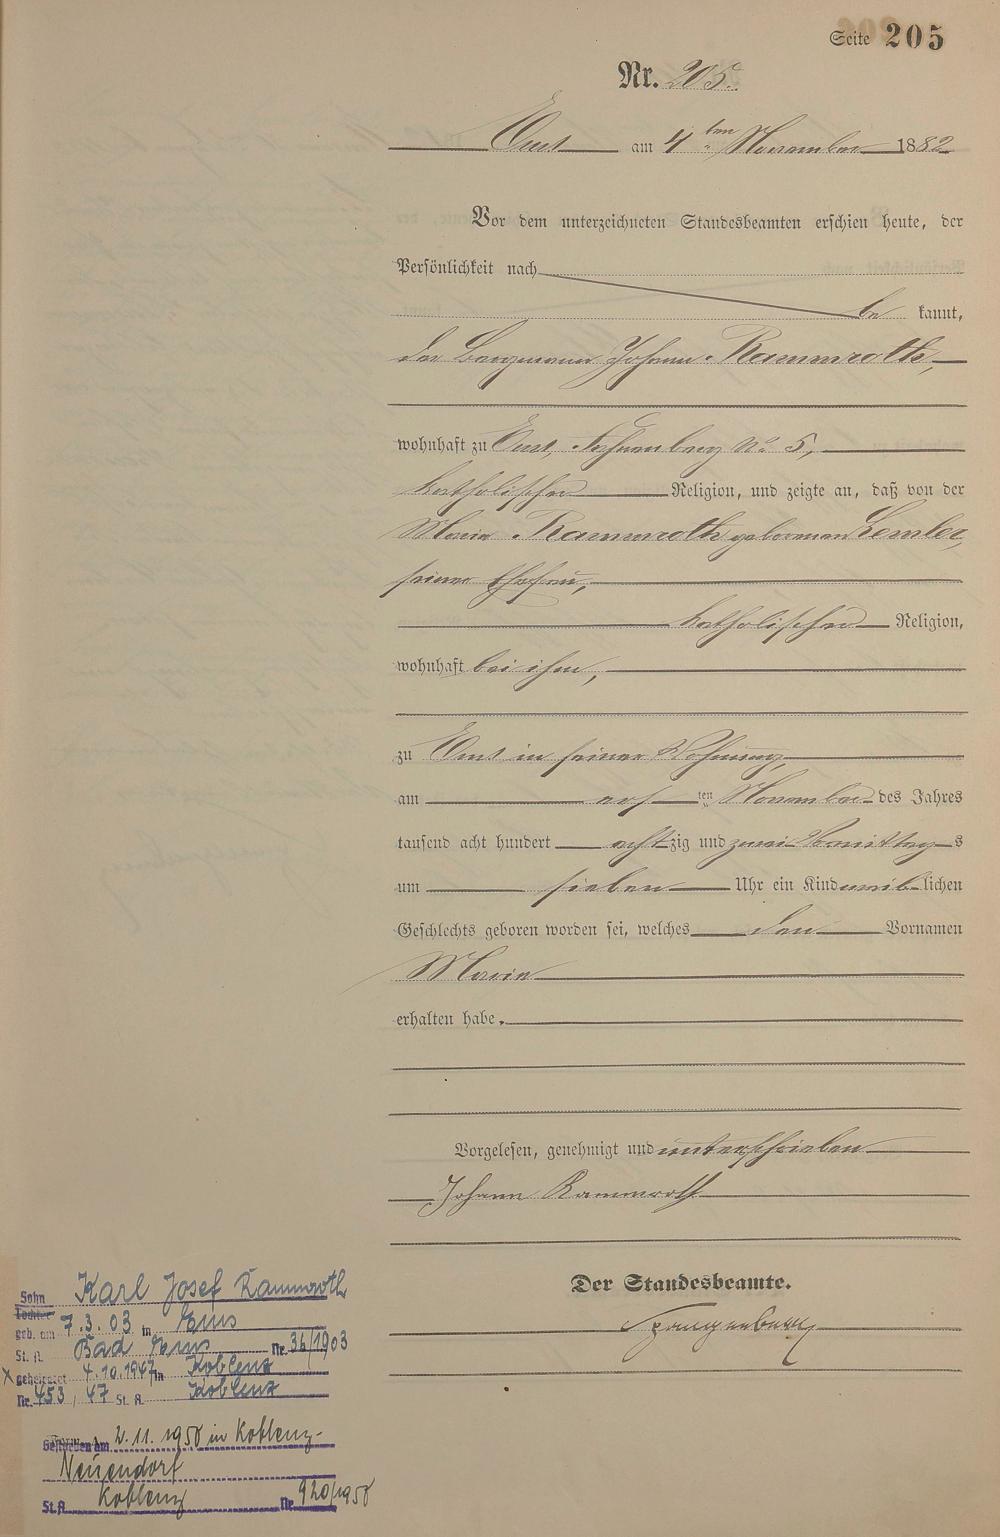 Seite 205
Nr. 205.
Ems am 4 ten November 1882
Vor dem unterzeichneten Standesbeamten erschien heute, der
Persönlichkeit nach
be kannt,
der Bergmann Johann Rammroth,
wohnhaft zu Ems, No 5,
katholischer Religion, und zeigte an, daß von der
Maria Rammroth geborenen Lemler,
seiner Ehefrau,
katholischer Religion,
wohnhaft bei ihm,
zu Ems in seiner Wohnung,
am ers ten November des Jahres
tausend acht hundert acht zig und zwei Vormittag s
um sieben Uhr ein Kind weib lichen
Geschlechts geboren worden sei, welches den Vornamen
Maria
erhalten habe.
Vorgelesen, genehmigt und unterschrieben
Johann Rammroth
Der Standesbeamte.
Spangenberg
Sohn Karl Josef Rammroth
Tochter
geb. am 7.3.03 in Ems
St. A. Bad Ems Nr. 36/1903
X geheiratet 4.10.1947 in Koblenz
Nr. 453 / 47 St. A. Koblenz
Gestorben am 2.11.1958 in Koblenz-
Neuendorf
St.A. Koblenz Nr. 920/1958